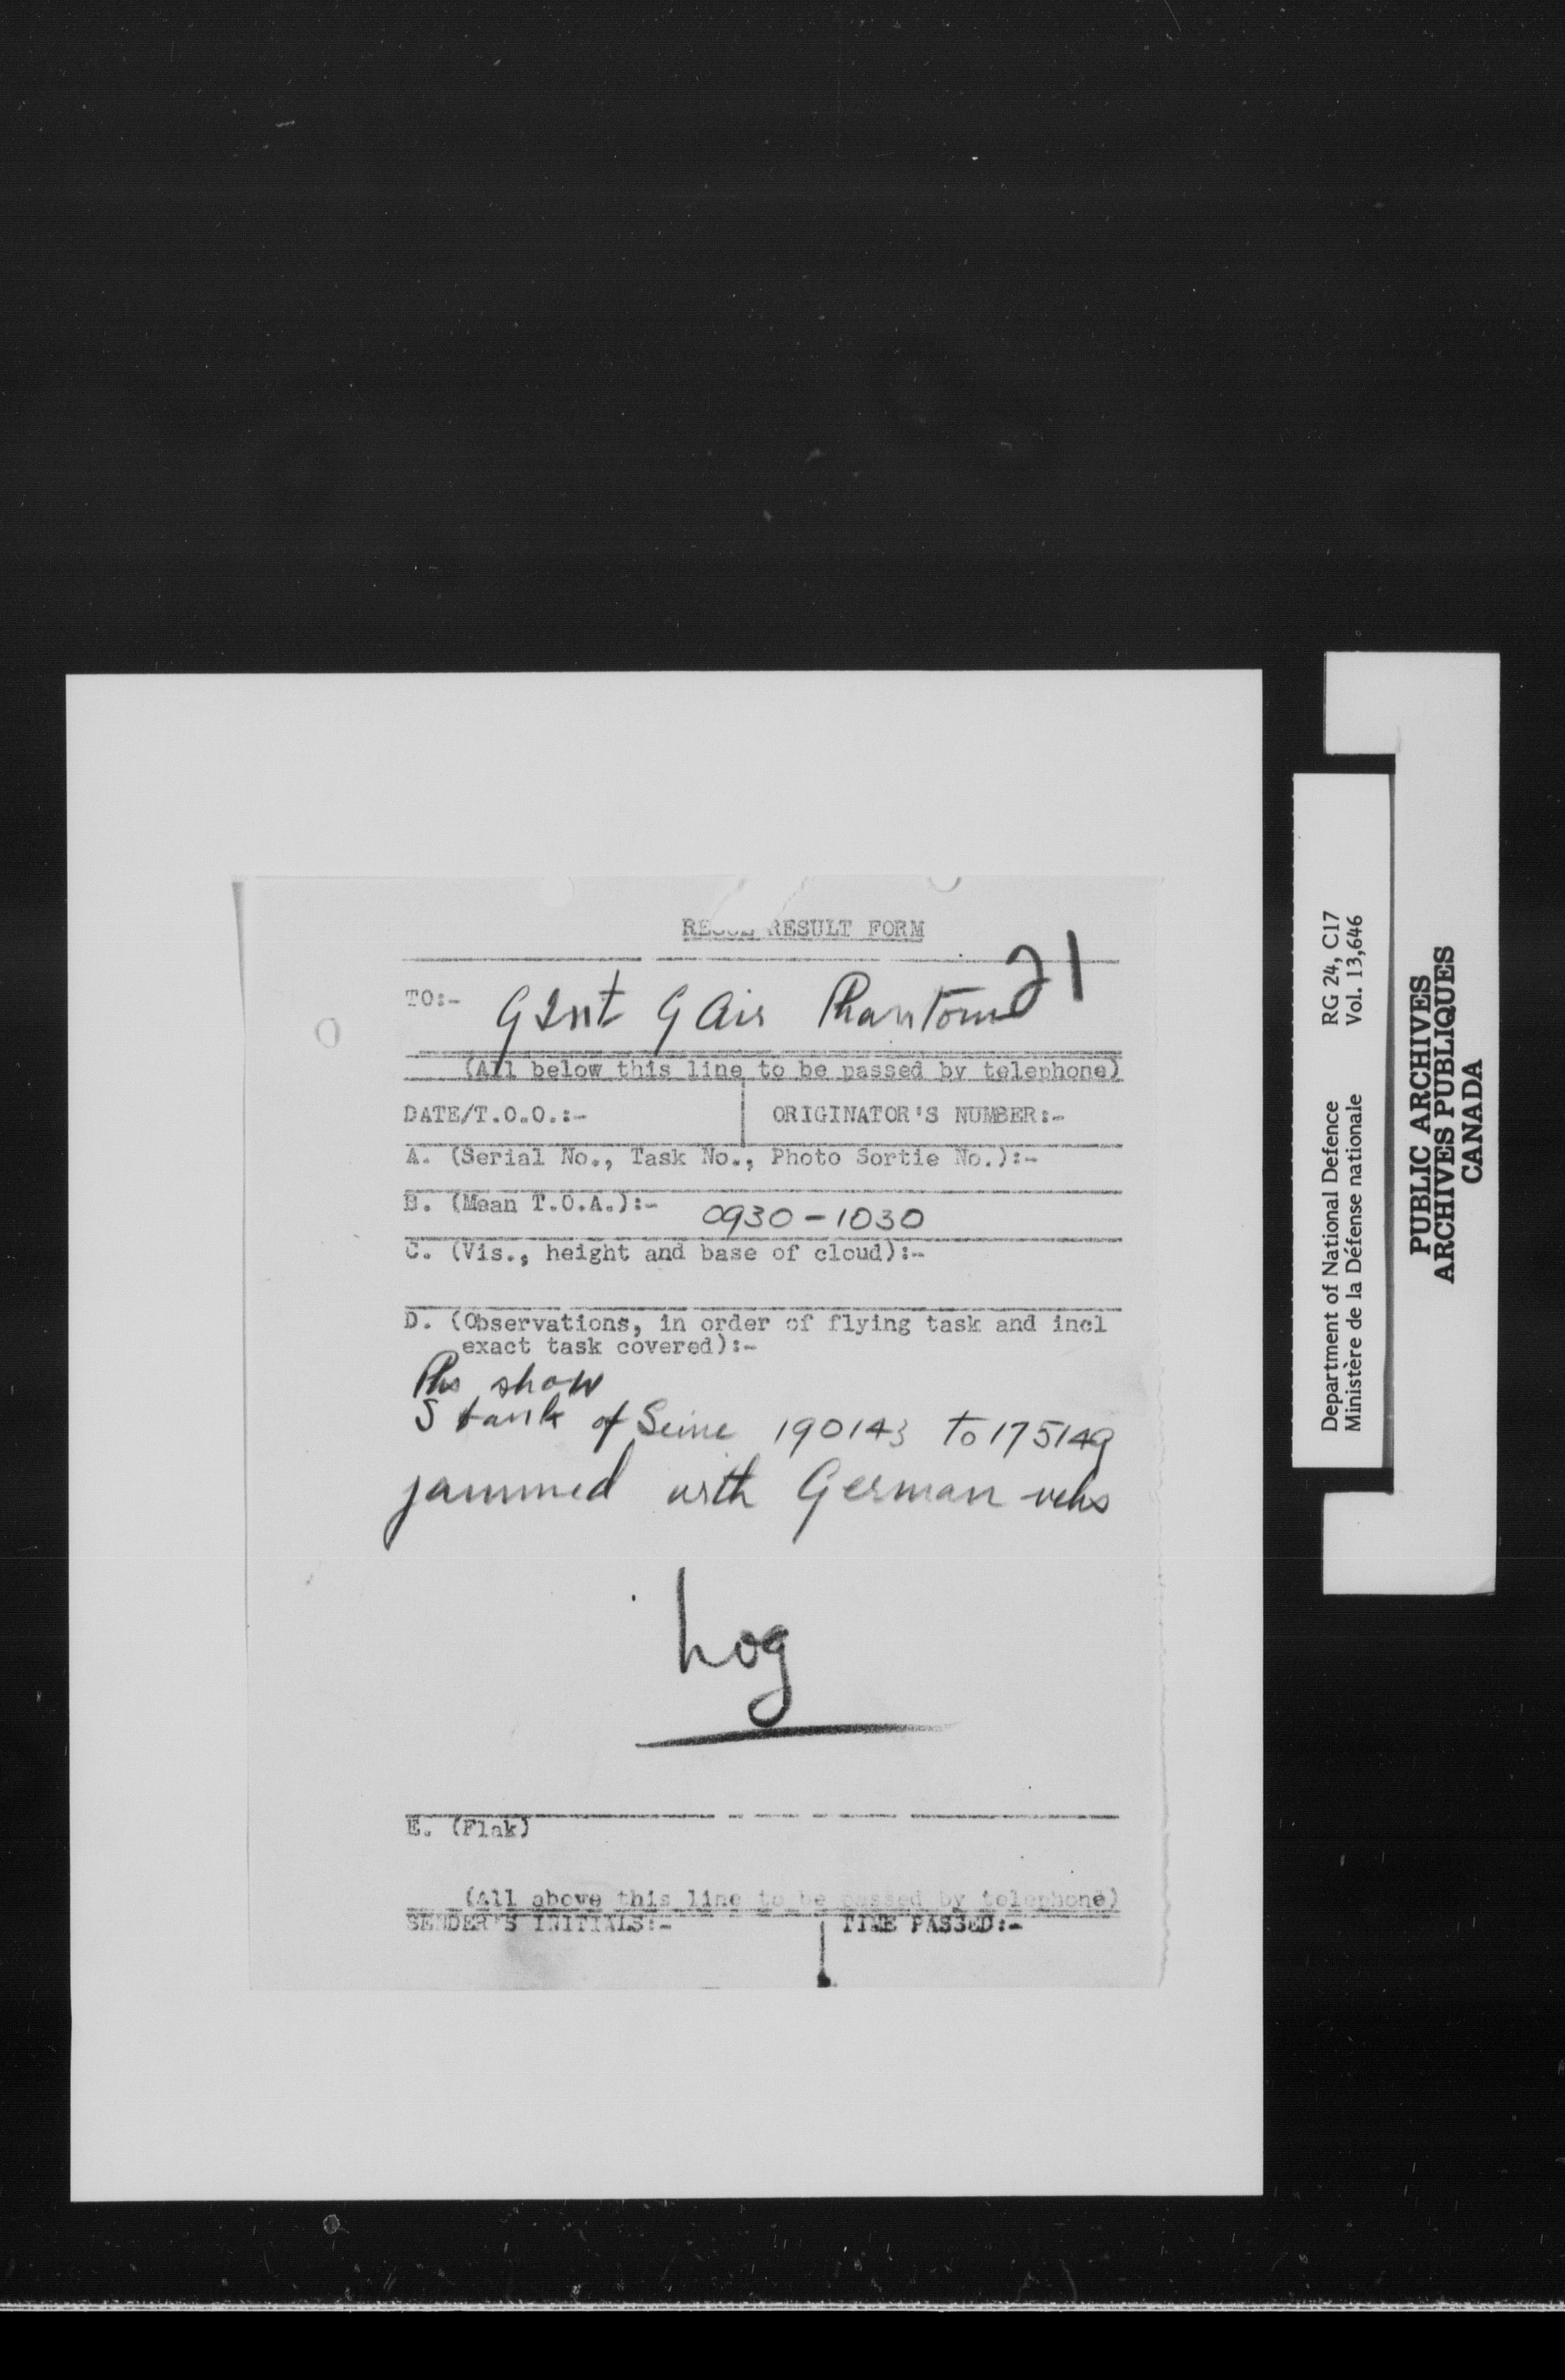 RESULT FORM
21
TO:- G Int G Air Phantom
(All below this line to be passed by telephone)
DATE/T.O.O.:- ORIGINATOR'S NUMBER:-
A. (Serial No., Task No., Photo Sortie No.):-
B. (Mean T.O.A.):- 0930-1030
C. (Vis., height and base of cloud):-
D. (Observations, in order of flying task and incl
exact task covered):-
Phs show
S bank of Seine 190143 to 175149
jammed with German vehs
Log
E. (Flak)
(All above this line to be passed by telephone)
SENDER'S INITIALS:- TIME PASSED:-
Department of National Defence RG 24, C17
Ministère de la Défense nationale Vol. 13,646
PUBLIC ARCHIVES
ARCHIVES PUBLIQUES
CANADA